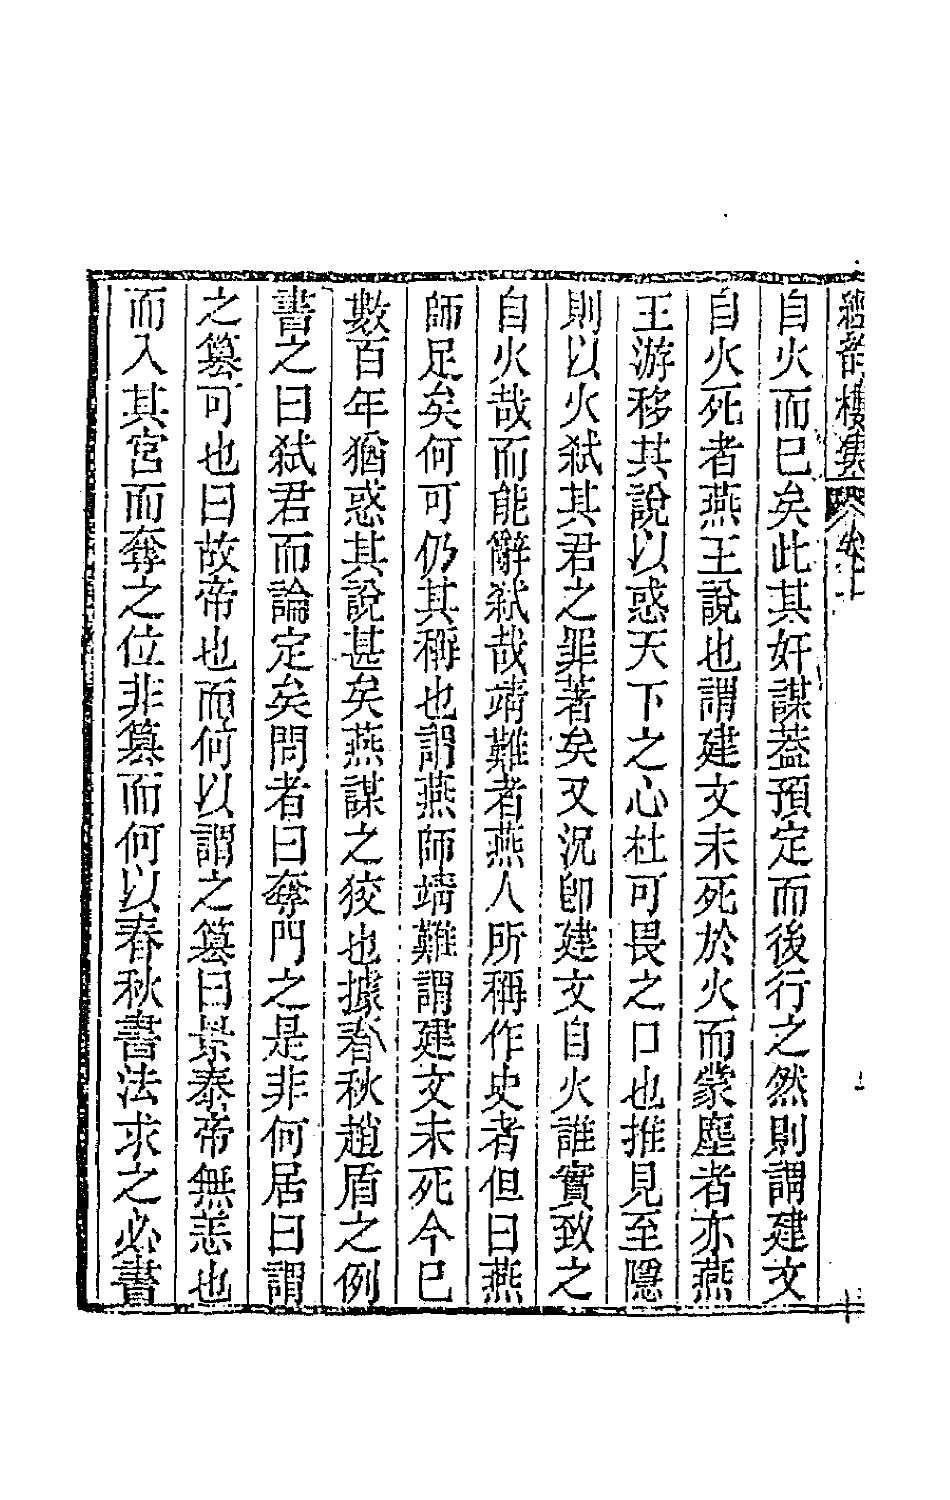 經韵樓集 卷十
自火而已矣此其奸謀葢預定而後行之然則謂建文
自火死者燕王說也謂建文未死於火而蒙塵者亦燕
王游移其說以惑天下之心杜可畏之口也推見至隱
則以火弑其君之罪著矣又況卽建文自火誰實致之
自火哉而能辭弑哉靖難者燕人所稱作史者但曰燕
師足矣何可仍其稱也謂燕師靖難謂建文未死今已
數百年猶惑其說甚矣燕謀之狡也據春秋趙盾之例
書之曰弑君而論定矣問者曰奪門之是非何居曰謂
之篡可也曰故帝也而何以謂之篡曰景泰帝無恙也
而入其宮而奪之位非篡而何以春秋書法求之必書